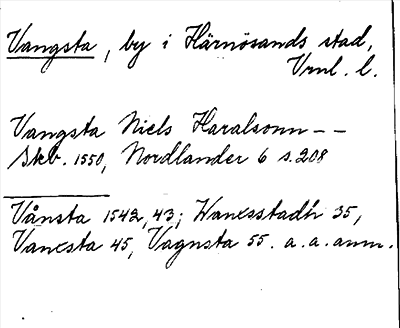 Vangsta, by i Härnösands stad,
Vrnl. l.
Vangsta Niels Haralsonn - -
Skb. 1550, Nordlander 6 s. 208
Vånsta 1542, 43; Wanxsstadh 35,
Vanxsta 45, Vagnsta 55. a. a. anm.